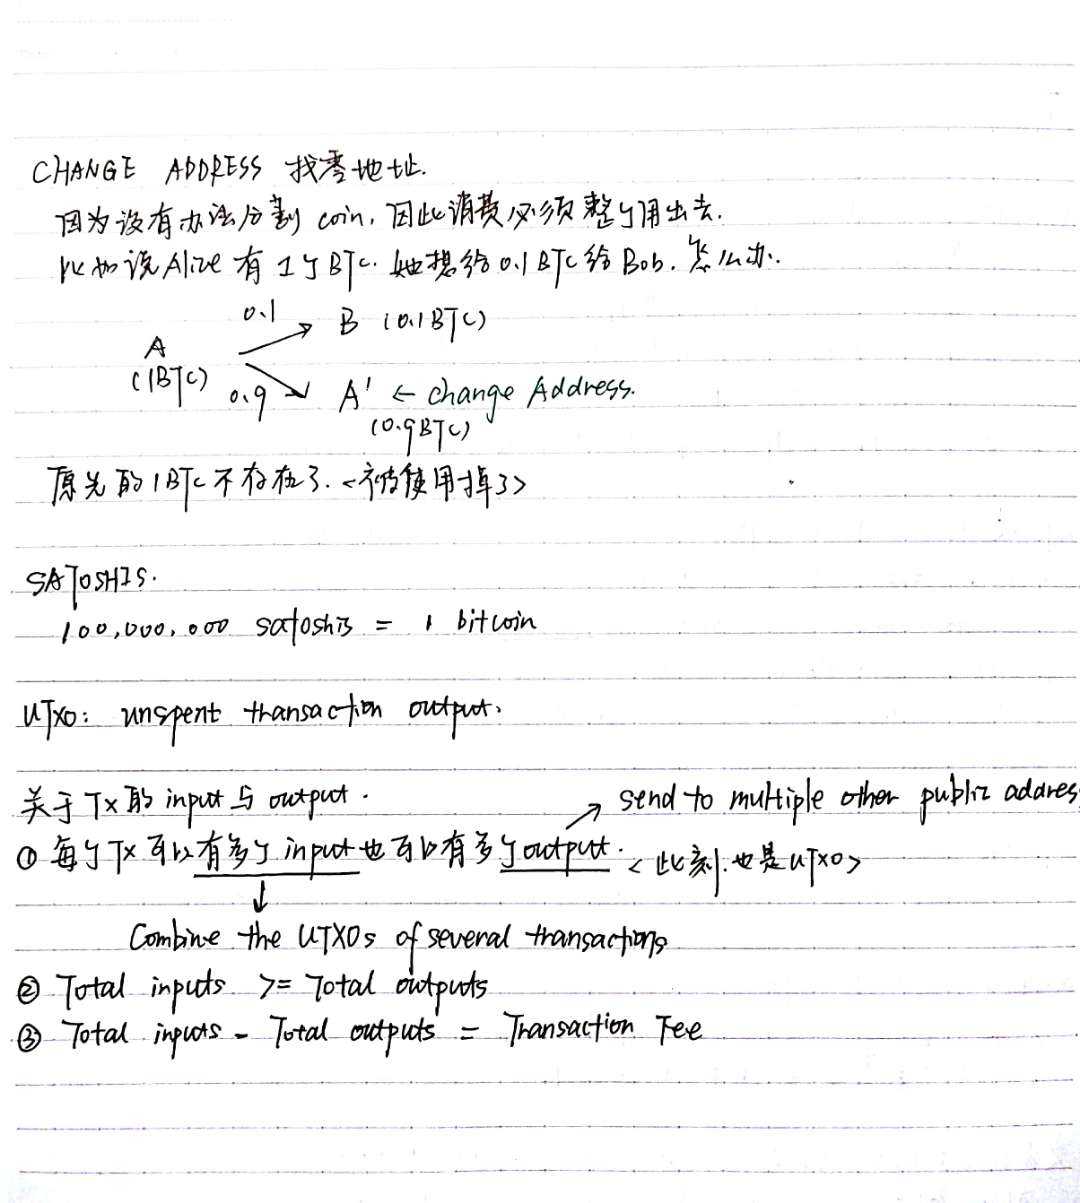 CHANGE ADDRESS 找零地址.
因为没有办法分割 coin, 因此消费必须整个用出去.
比如说 Alice 有 1个 BTC. 她想给 0.1 BTC 给 Bob. 怎么办.
0.1
B (0.1BTC)
A
(1BTC)
0.9
A' ← change Address.
(0.9BTC)
原先的 1BTC 不存在了. <被使用掉了>
SATOSHIS.
100,000,000 satoshis = 1 bitcoin
UTXO: unspent transaction output.
关于 Tx 的 input 与 output.
send to multiple other public addres
① 每个 Tx 可以有多个 input 也可以有多个 output. <此刻.也是 UTXO>
Combine the UTXOs of several transactions
② Total inputs >= Total outputs
③ Total inputs - Total outputs = Transaction Fee